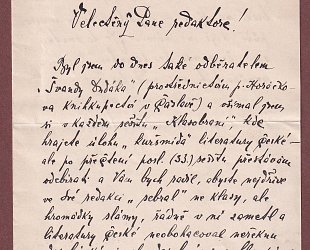 Velectěný Pane redaktore!
Byl jsem do dnes také odběratelem
"Švandy Dudáka" (prostřednictvím p. Horáčko-
va knihkupectví v Čáslavě) a všímal jsem
si v každém sešitu "Klasobraní", kde
hrajete úlohu "kursmida" literatury české
ale po přečtení posl. (33.) sešitu přestávám
odebírati a Vám bych radil, abyste nejdříve
ve své redakci "sebral" ne klasy, ale
hromádky slámy, řádně v ní zametl a
literaturu české neobohacoval